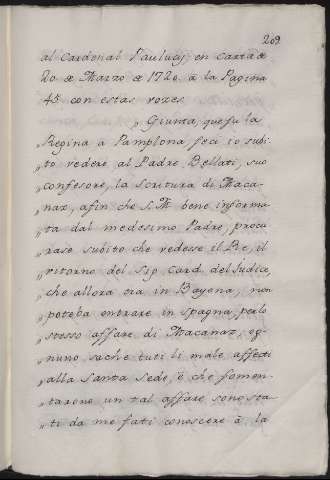 209
al Cardenal Paulucij en carta de
20 de Marzo de 1720. à la Pagina
45 con estas vozes
„ Giunta, que fu la
„Regina a Pamplona feci io subi-
„to vedere al Padre Bellati, suo
„confesore, la Scritura di Maca-
„naz, afin che S. M. bene informa-
„ta dal medesimo Padre, procu-
„rase subito che vedesse il Re, il
„ritorno del Sig. Card. del Judice,
„che allora era in Bayona, non
„poteba entrare in Spagna, per lo
„stesso affare di Macanaz, og-
„nuno sache tuti li male affecti
„alla Santa Sede, è che fomen-
„tarono un tal affare sono sta-
„ti da me fati conoscere à la